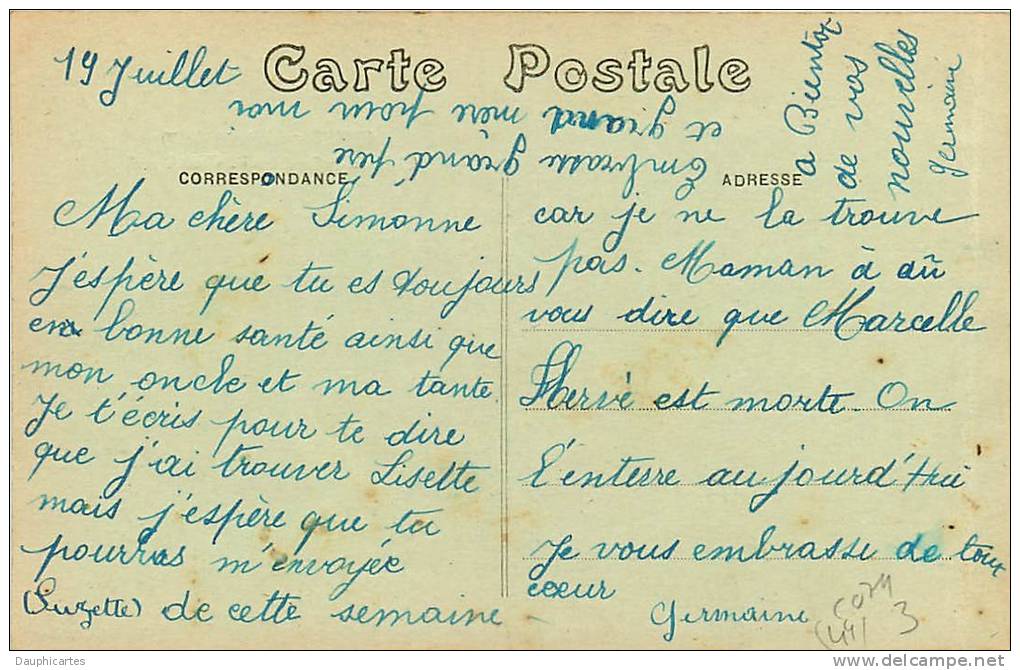 19 Juillet
Carte Postale
CORRESPONDANCE
Ma chère Simonne
J'espère que tu es toujours
en bonne santé ainsi que
mon oncle et ma tante.
Je t'écris pour te dire
que j'ai trouver Lisette
mais j'espère que tu
pourras m'envoyée
(Suzette) de cette semaine
ADRESSE
car je ne la trouve
pas. Maman à dû
vous dire que Marcelle
Hervé est morte. On
l'enterre aujourd'Hui
Je vous embrasse de tout
coeur
Germaine
Embrasse grand'père
et grand mère pour moi
a Bientot
de vos
nouvelles
Germaine
3
Dauphicartes
delcampe.net